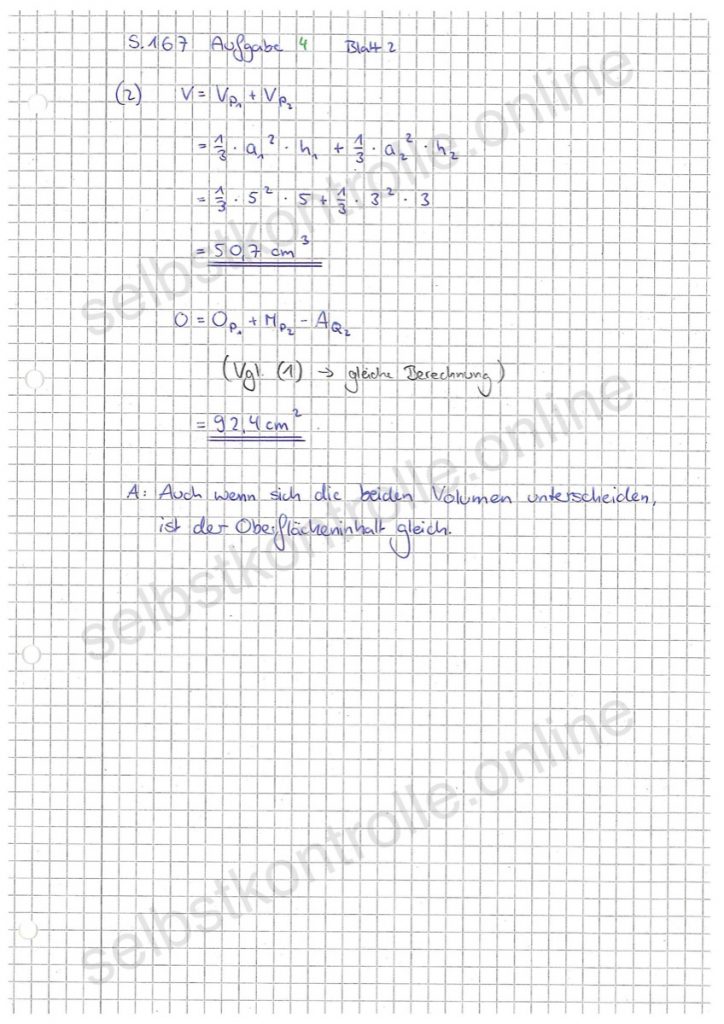 S.167 Aufgabe 4 Blatt 2
(2) V = V_P₁ + V_P₂
= 1/3 · a₁² · h₁ + 1/3 · a₂² · h₂
= 1/3 · 5² · 5 + 1/3 · 3² · 3
= 50,7 cm³
O = O_P₁ + M_P₂ - A_Q₂
(Vgl. (1) → gleiche Berechnung)
= 92,4 cm²
A: Auch wenn sich die beiden Volumen unterscheiden,
ist der Oberflächeninhalt gleich.
selbstkontrolle.online
selbstkontrolle.online
selbstkontrolle.online